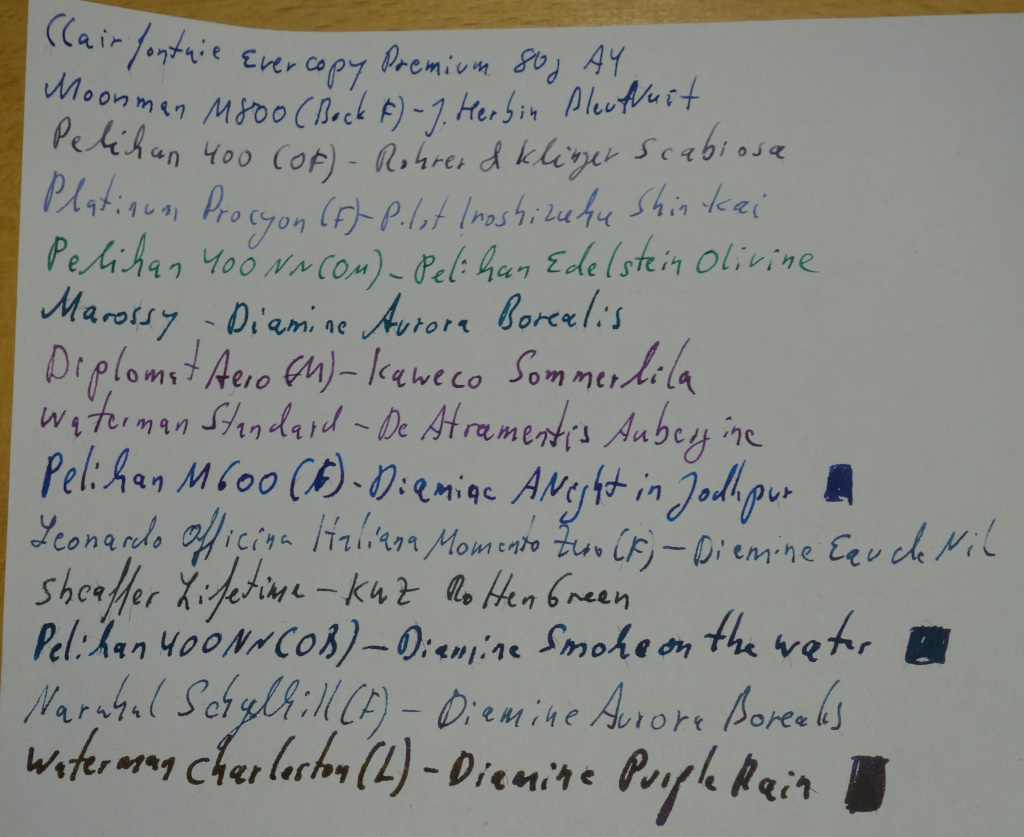 Clairfontaie Evercopy Premium 80g A4
Moonman M800 (Bock F) - J. Herbin Bleu Nuit
Pelikan 400 (OF) - Rohrer & Klinger Scabiosa
Platinum Procyon (F) - Pilot Iroshizuku Shin-kai
Pelikan 400NN (OM) - Pelikan Edelstein Olivine
Marossy - Diamine Aurora Borealis
Diplomat Aero (M) - Kaweco Sommerlila
Waterman Standard - De Atramentis Aubergine
Pelikan M600 (F) - Diamine A Night in Jodhpur
Leonardo Officina Italiana Momento Zero (F) - Diamine Eau de Nil
Sheaffer Lifetime - KWZ Rotten Green
Pelikan 400NN (OB) - Diamine Smoke on the water
Narwhal Schuylkill (F) - Diamine Aurora Borealis
Waterman Charleston (L) - Diamine Purple Rain